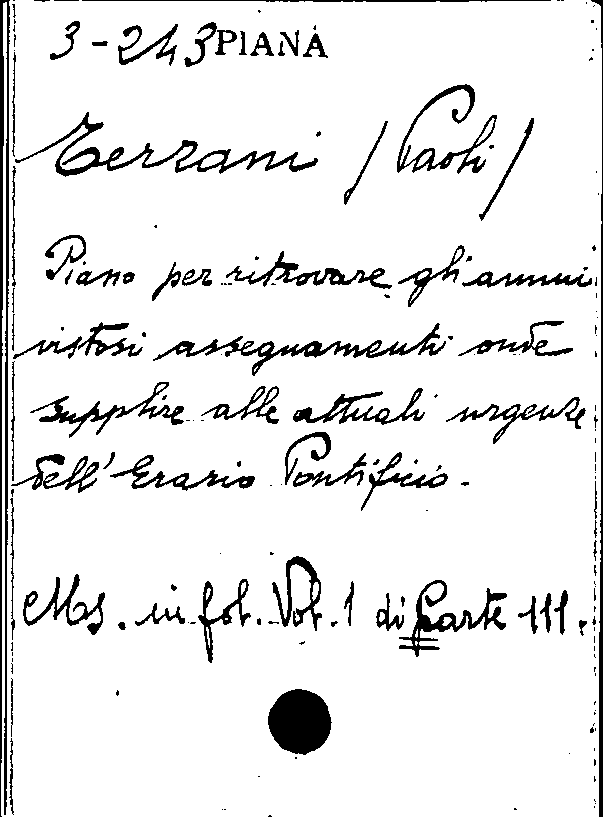 3-243 PIANA
Terzani (Paoli)
Piano per ritrovare gli annui
vistosi assegnamenti onde
supplire alle attuali urgenze
dell'Erario Pontificio.
Ms. in fol. Vol. 1 di carte 111.